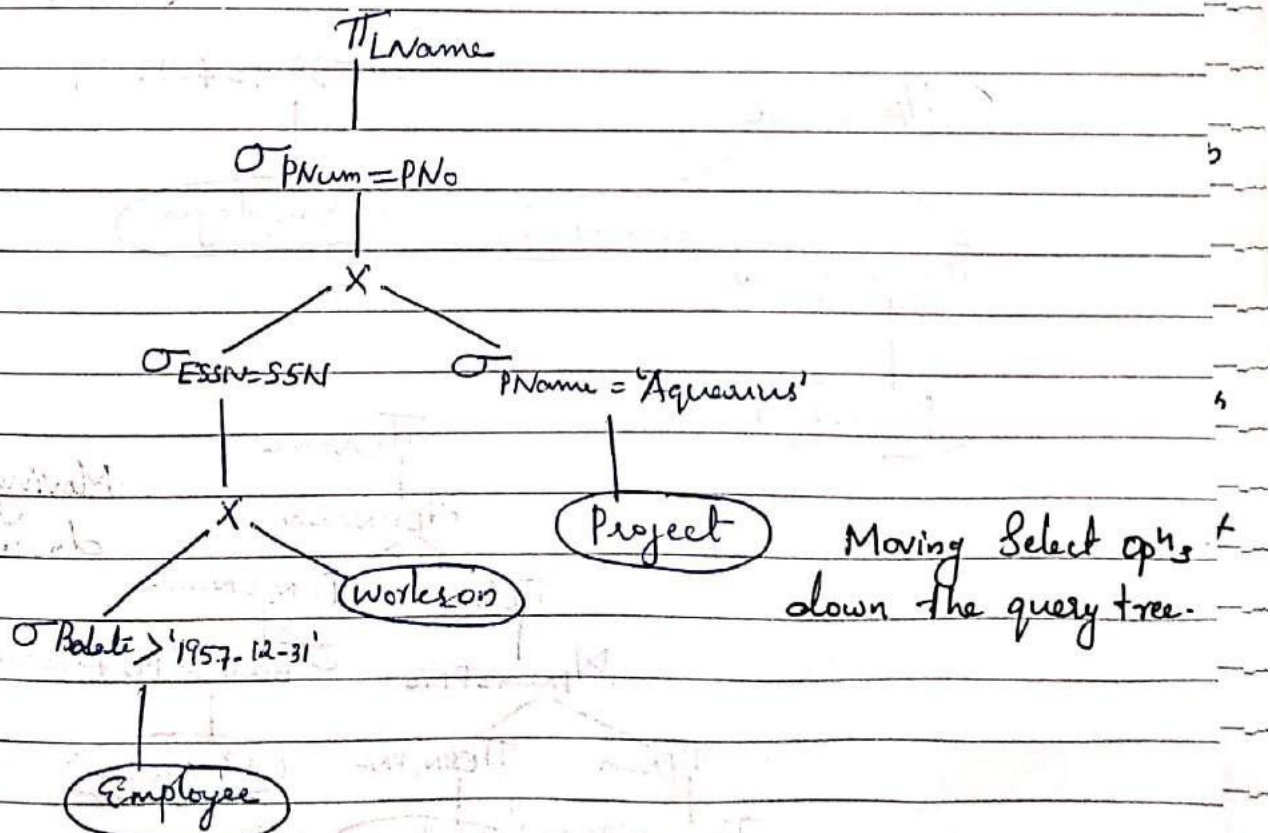 π LName
σ PNum = PNo
X
σ ESSN=SSN σ PName = 'Aquarius'
X
Project
Moving Select opns
down the query tree.
Works_on
σ Bdate > '1957-12-31'
Employee